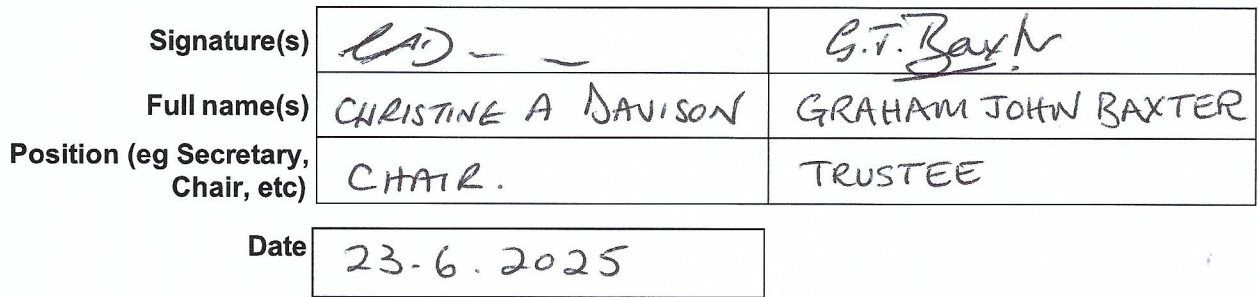 Signature(s) G.T. Baxter
Full name(s) CHRISTINE A DAVISON GRAHAM JOHN BAXTER
Position (eg Secretary,
Chair, etc) CHAIR. TRUSTEE
Date 23-6.2025